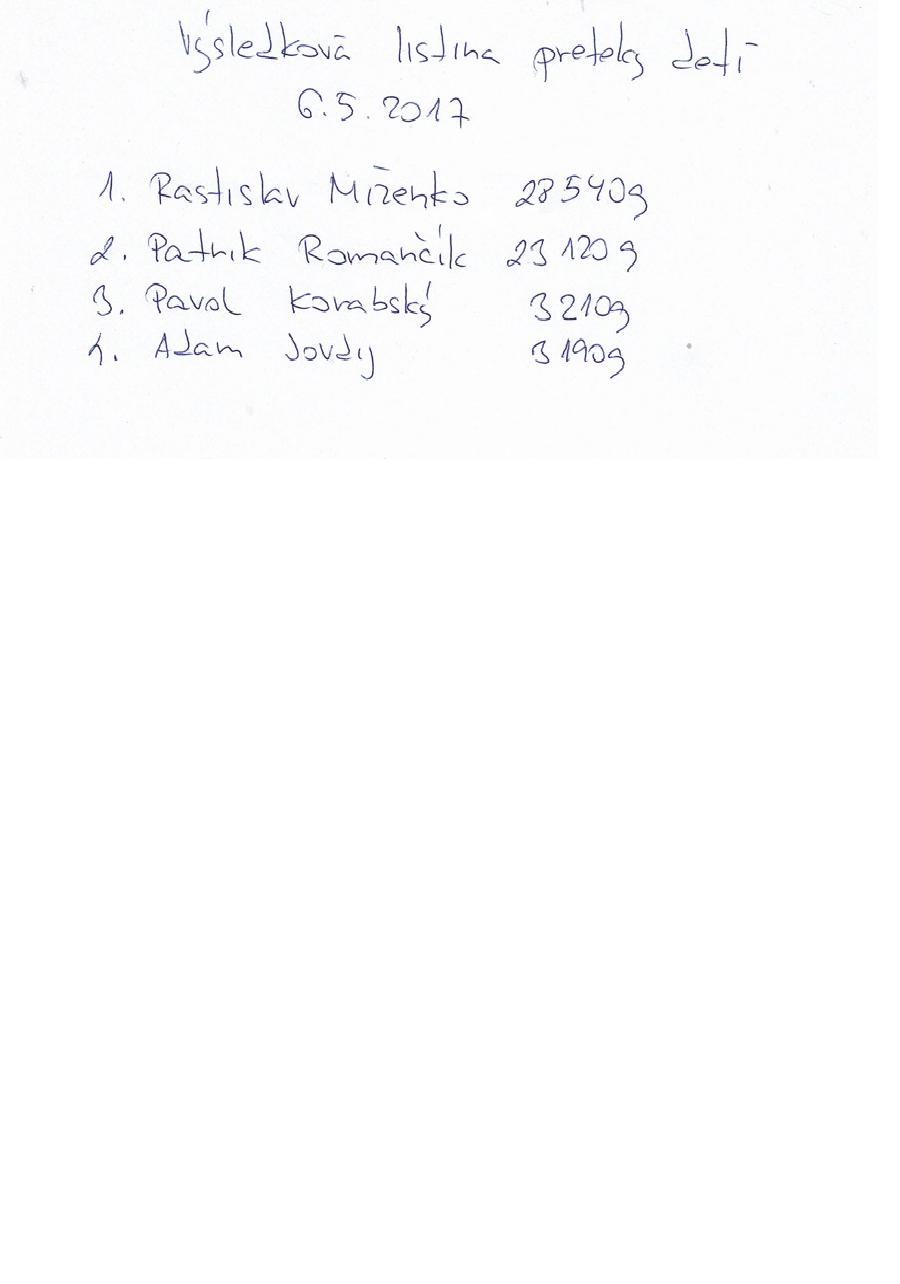 Výsledková listina preteky detí
6.5.2017
1. Rastislav Mízenko 28540g
2. Patrik Romančík 23120g
3. Pavol Korabský 3210g
4. Adam Jovdy 3190g